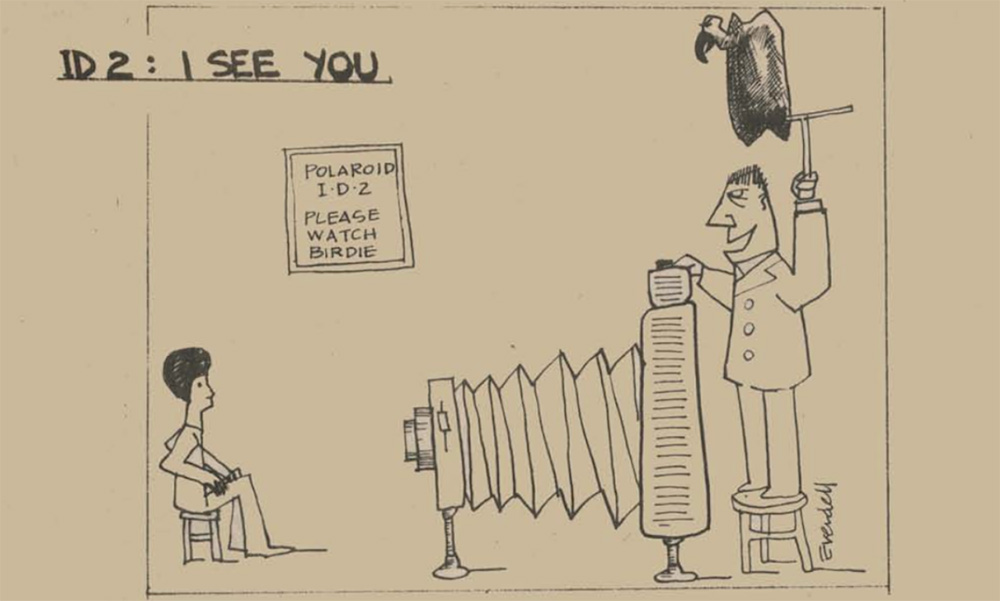 ID 2: I SEE YOU
POLAROID
I·D·2
PLEASE
WATCH
BIRDIE
Evendell